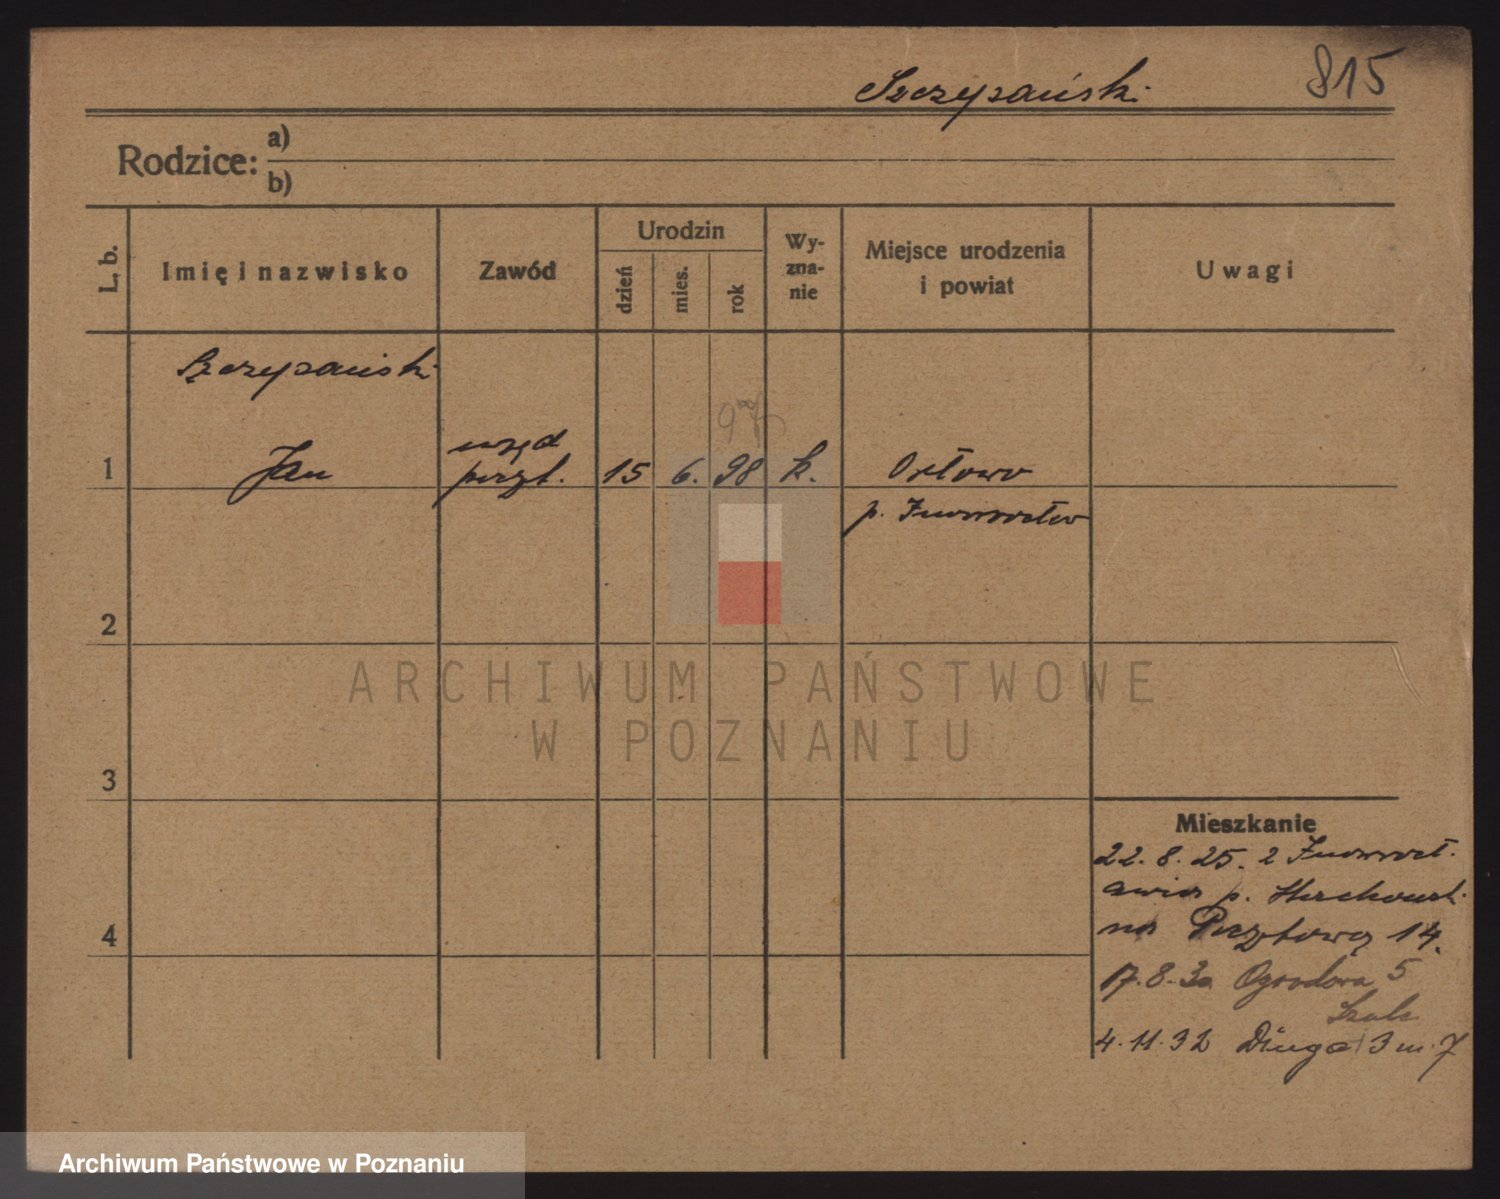 815
Szczypański
Rodzice: a)
b)
L. b.
Imię i nazwisko
Zawód
Urodzin
dzień
mies.
rok
Wy-
zna-
nie
Miejsce urodzenia
i powiat
Uwagi
Szczypański
97
1 Jan
urzęd
poczt. 15 6. 98 k. Orłowo
p. Inowrocław
2
3
4
Mieszkanie
22. 8. 25. z Inowrocł.
awia p.
na Pocztową 14.
17. 8. 30 Ogrodowa 5
Szulc
4. 11. 32 Długa 3 m. 7
ARCHIWUM PAŃSTWOWE
W POZNANIU
Archiwum Państwowe w Poznaniu